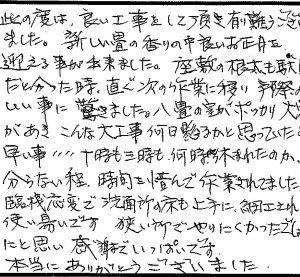 此の度は、良い工事をして頂き有難うござ
ました。新しい畳の香りの中良いお正月を
迎える事が出来ました。座敷の根太も駄
だと分った時、直ぐ次の作業に移り手際の
いい事に驚きました。八畳の室がポッカリ大
があきこんな大工事何日掛るかと思っていた
早い事‥‥十時も三時も、何時休まれたのか、
分らない程、時間を惜んで作業されてました
臨機応変で洗面所の床も上手に、細工され
使い易いです 狭い所でやりにくかったでし
にと思い感謝でいっぱいです。
本当にありがとうございました。